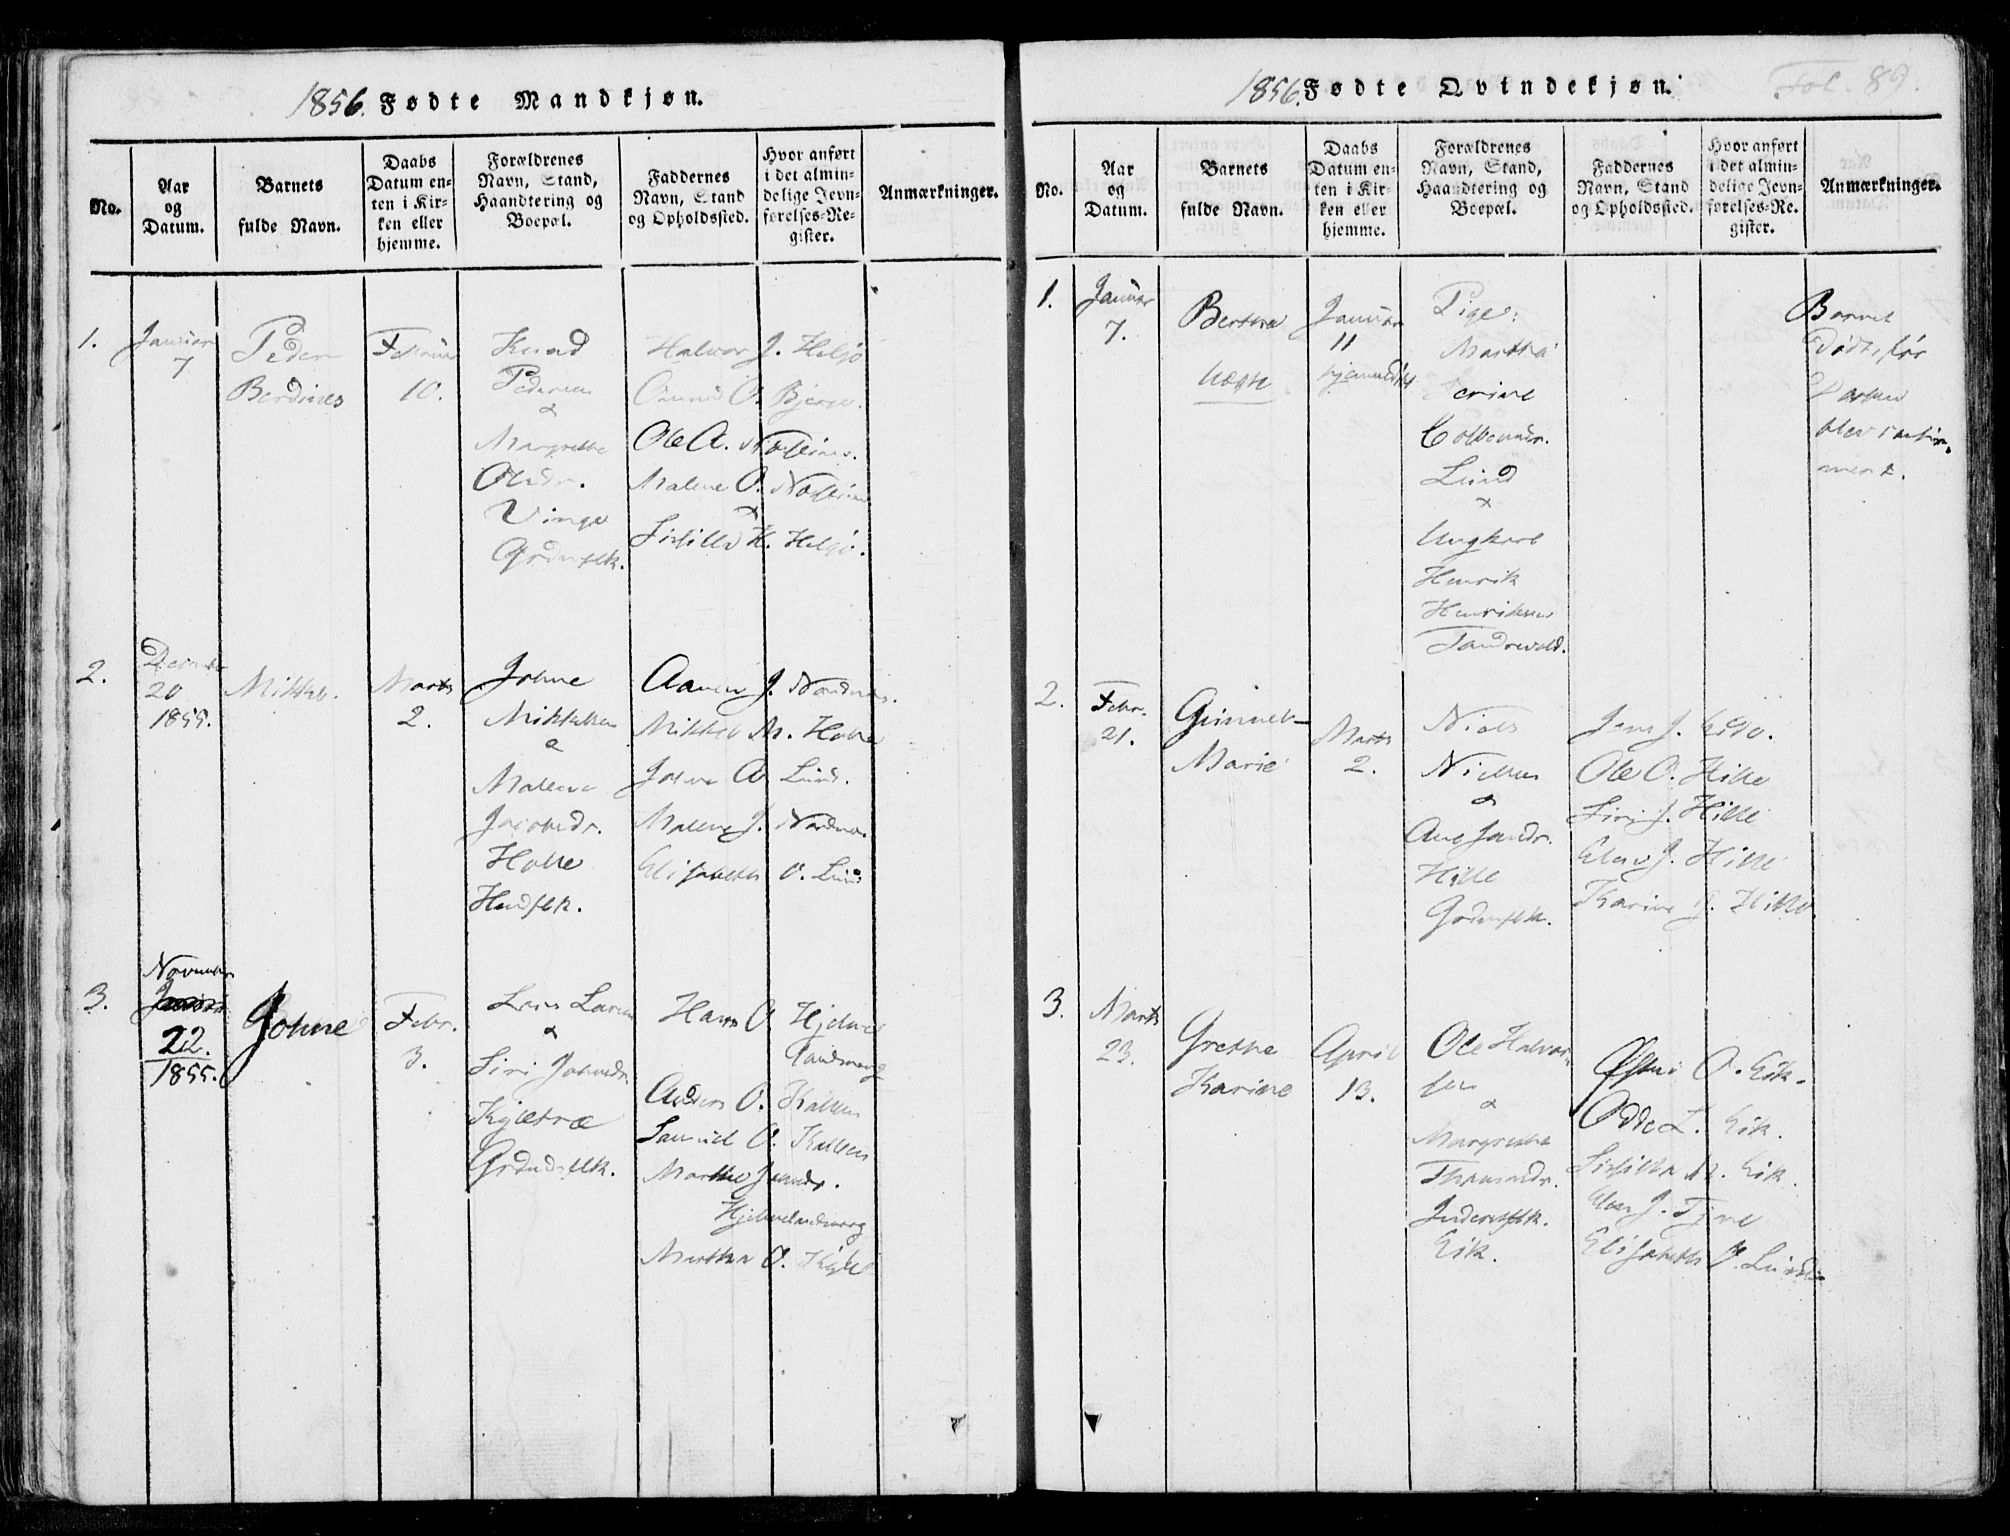 1856. Fødte Mandkjøn.
No.
Aar
og
Datum.
Barnets
fulde Navn.
Daabs
Datum en-
ten i Kir-
ken eller
hjemme.
Forældrenes
Navn, Stand,
Haandtering og
Boepæl.
Faddernes
Navn, Stand
og Opholdssted.
Hvor anført
i det almin-
delige Jevn-
førelses-Re-
gister.
Anmærkninger.
1.
Januar
7
Peder
Berdines
Februar
10.
Knud
Pedersen
&
Margrethe
Olsdr.
Vinge
Grdmflk.
Halvor J. Helsø
Omund O. Bjerge.
Ole A.
Malene O.
&
H. Helsø.
2.
December
20
1855.
Mikkel.
Marts
2.
Johne
Mikkelsen
&
Malene
Jacobsdr.
Hobe
Husflk.
Aanen J. Nordnes.
Mikkel M. Hobe
Johne A Lund.
Malene J. Nordnes.
Elisabeth O. Lund
3.
November
22.
1855.
Johne
Febr.
3.
Lars Larsen
&
Siri Johnsdr.
Kyletræ
Grdmdsflk.
Hans O. Hjelme
landsvaag
Anders O. Kallen
Samuel O. Kallen
Marthe Joansdr.
Hjelmelandsvaag
Martha O. Kyle
1856. Fødte Qvindekjøn.
Fol. 89.
No.
Aar
og
Datum.
Barnets
fulde Navn.
Daabs
Datum en-
ten i Kir-
ken eller
hjemme.
Forældrenes
Navn, Stand,
Haandtering og
Boepæl.
Faddernes
Navn, Stand
og Opholdssted.
Hvor anført
i det almin-
delige Jevn-
førelses-Re-
gister.
Anmærkninger.
1.
Januar
7.
Bertha
uægte
Januar
11
hjemmedøbt
Pige:
Martha
Serine
Colbeinsdr.
Lund
&
Ungkarl
Henrik
Henriksen
Tandrevold.
Barnet
døde, før
Daaben
blev confir-
meret.
2.
Febr.
21.
Gunnel
Marie
Marts
2.
Niels
Nielsen
&
Ane Jansdr.
Hille
Grdmflk.
Jens J.
Ole O. Hille
Siri J. Hille
Elen J. Hille
Karine J. Hille
3.
Marts
23.
Grethe
Karine
April
13.
Ole Halvor-
sen
&
Margrethe
Thomasdr.
Inderstflk.
Eik.
Østen O. Eik.
Odde L. Eik.
M. Eik.
Elen J. Tyne
Elisabeth O. Lund